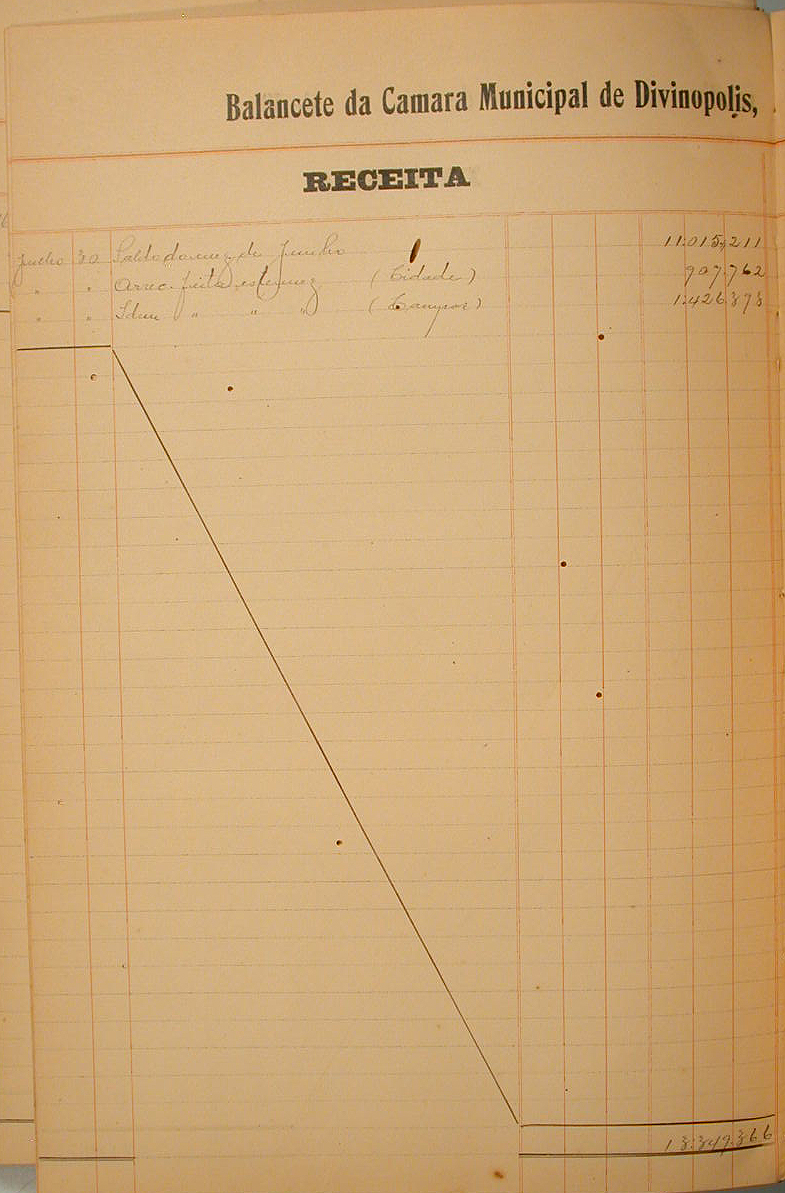 Balancete da Camara Municipal de Divinopolis,
RECEITA
Julho 30 Saldo do mez de Junho 11:015,211
" " Arrec. feita este mez (Cidade) 907,762
" " Idem " " " (Campos) 1:426,393
13:349,366